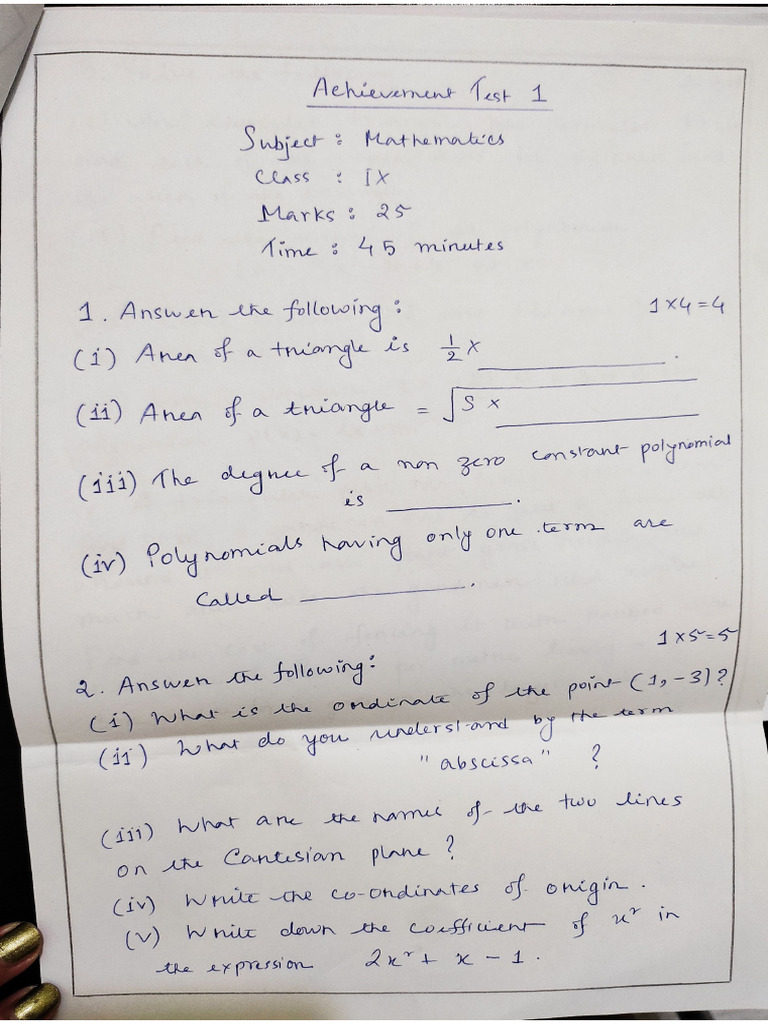 Achievement Test 1
Subject : Mathematics
Class : IX
Marks : 25
Time : 45 minutes
1. Answer the following : 1 × 4 = 4
(i) Area of a triangle is 1/2 × ________ .
(ii) Area of a triangle = √S × ________
(iii) The degree of a non zero constant polynomial
is ________ .
(iv) Polynomials having only one term are
called ________ .
2. Answer the following : 1 × 5 = 5
(i) What is the ordinate of the point (1, -3) ?
(ii) What do you understand by the term
"abscissa" ?
(iii) What are the names of the two lines
on the Cartesian plane ?
(iv) Write the co-ordinates of origin .
(v) Write down the coefficient of x² in
the expression 2x² + x - 1 .